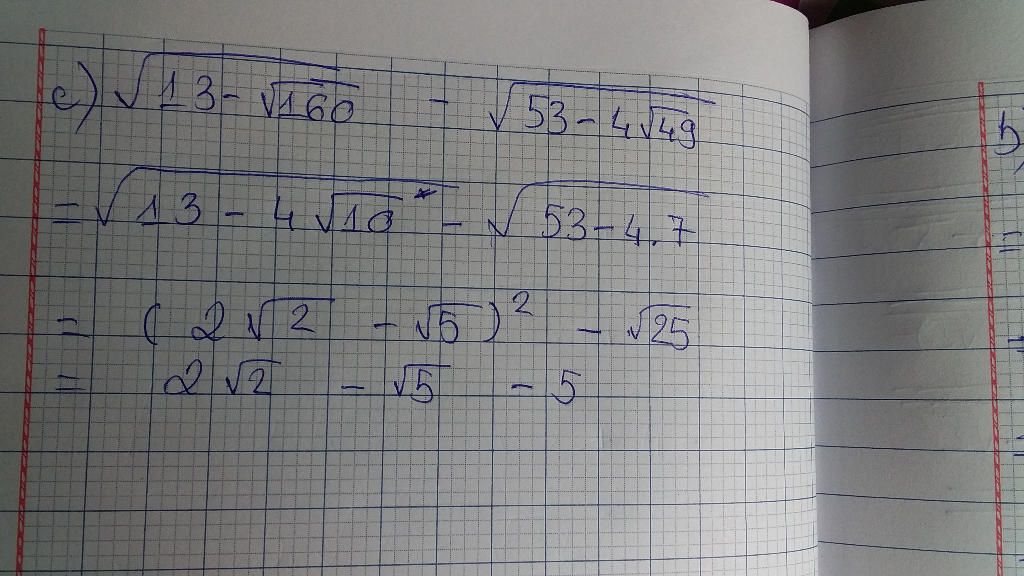 c) √(13 - √160) - √(53 - 4√49)
= √(13 - 4√10*) - √(53 - 4.7)
= (2√2 - √5)² - √25
= 2√2 - √5 - 5